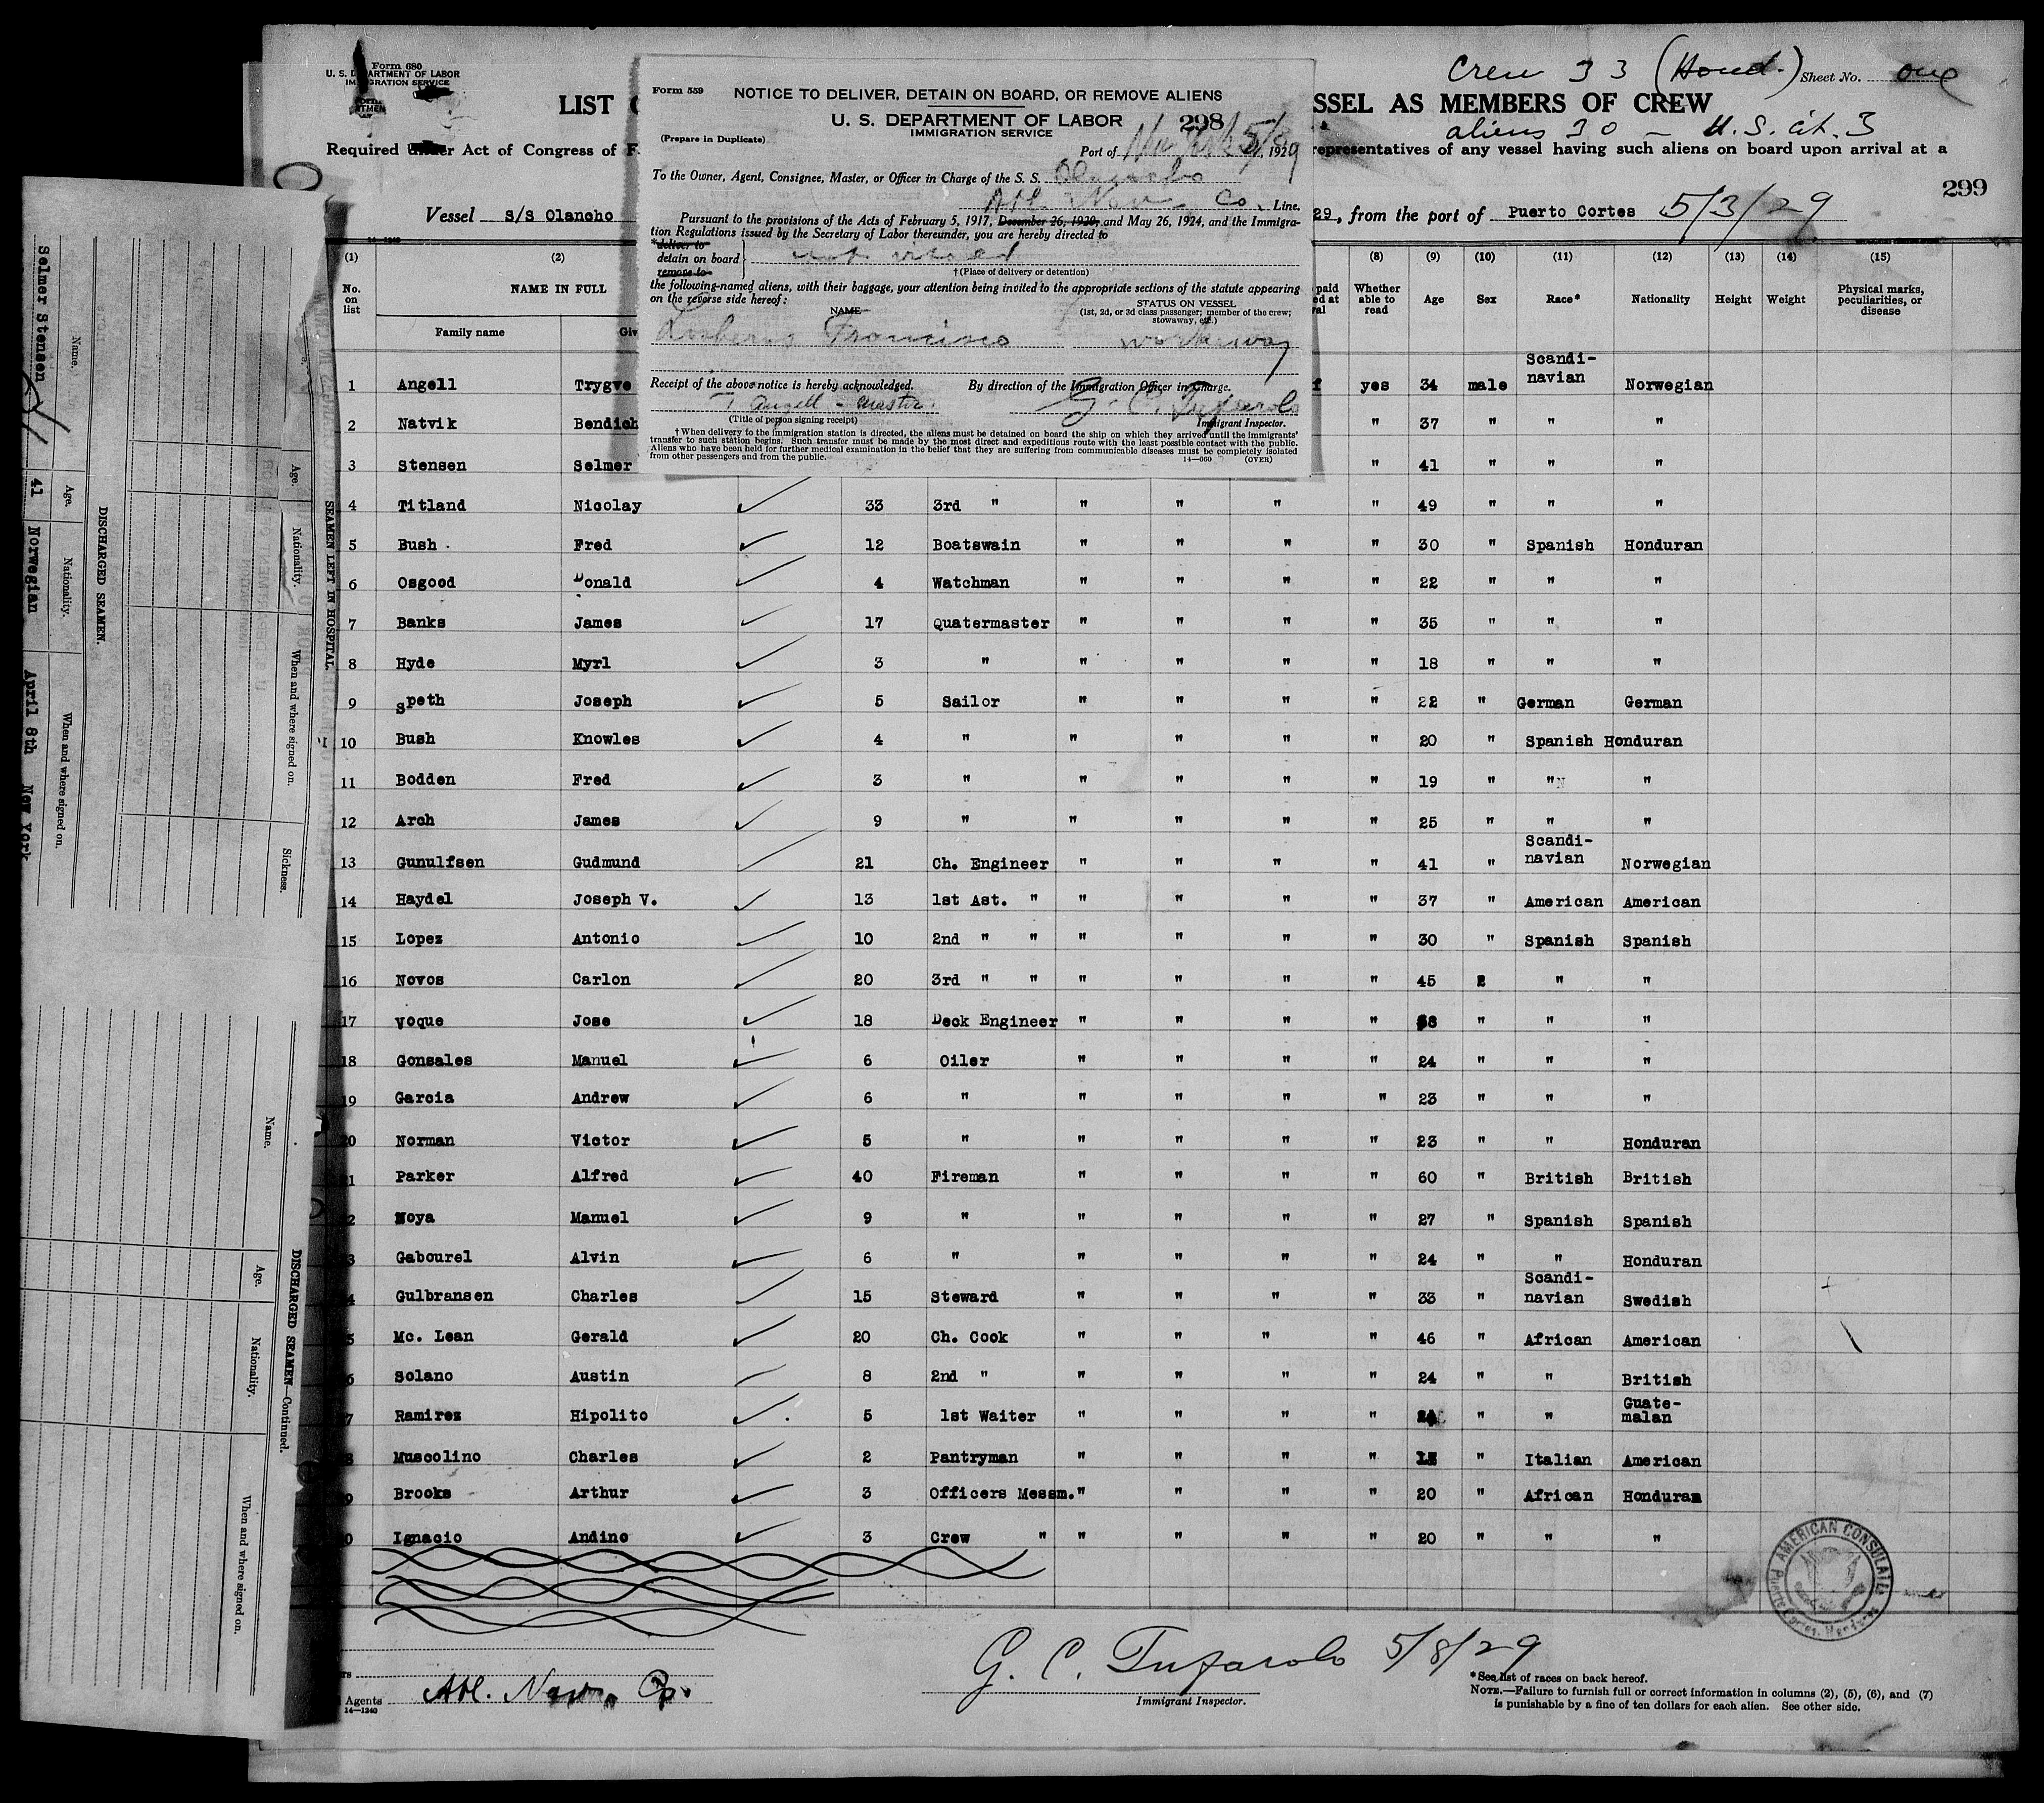 Form 680
U. S. DEPARTMENT OF LABOR
IMMIGRATION SERVICE
Crew 33 (Hond.) Sheet No. one
LIST
SSEL AS MEMBERS OF CREW
aliens 30 - U.S. Cit. 3
Required Under Act of Congress of F
representatives of any vessel having such aliens on board upon arrival at a
299
Vessel S/S Olancho
29, from the port of Puerto Cortes 5/3/29
Form 559
NOTICE TO DELIVER, DETAIN ON BOARD, OR REMOVE ALIENS
U. S. DEPARTMENT OF LABOR 298
IMMIGRATION SERVICE
(Prepare in Duplicate)
Port of 5/8, 1929
To the Owner, Agent, Consignee, Master, or Officer in Charge of the S. S. Olancho
Atl. Nav. Co. Line.
Pursuant to the provisions of the Acts of February 5, 1917, December 26, 1920, and May 26, 1924, and the Immigra-
tion Regulations issued by the Secretary of Labor thereunder, you are hereby directed to
*deliver to
detain on board not visaed
remove to
†(Place of delivery or detention)
the following-named aliens, with their baggage, your attention being invited to the appropriate sections of the statute appearing
on the reverse side hereof:
NAME STATUS ON VESSEL
(1st, 2d, or 3d class passenger; member of the crew;
stowaway, etc.)
Francisco workaway
Receipt of the above notice is hereby acknowledged. By direction of the Immigration Officer in Charge.
T. Angell - Master. G. C. Tufarolo
(Title of person signing receipt) Immigrant Inspector.
†When delivery to the immigration station is directed, the aliens must be detained on board the ship on which they arrived until the immigrants'
transfer to such station begins. Such transfer must be made by the most direct and expeditious route with the least possible contact with the public.
Aliens who have been held for further medical examination in the belief that they are suffering from communicable diseases must be completely isolated
from other passengers and from the public. 14—660 (OVER)
14—1240
(1) (2) (8) (9) (10) (11) (12) (13) (14) (15)
No. on list NAME IN FULL Whether able to read Age Sex Race* Nationality Height Weight Physical marks, peculiarities, or disease
Family name
1 Angell Trygve yes 34 male Scandi-navian Norwegian
2 Natvik Bendich " 37 " " "
3 Stensen Selmer " 41 " " "
4 Titland Nicolay 33 3rd " " " " " 49 " " "
5 Bush Fred 12 Boatswain " " " " 30 " Spanish Honduran
6 Osgood Donald 4 Watchman " " " " 22 " " "
7 Banks James 17 Quatermaster " " " " 35 " " "
8 Hyde Myrl 3 " " " " " 18 " " "
9 Speth Joseph 5 Sailor " " " " 22 " German German
10 Bush Knowles 4 " " " " " 20 " Spanish Honduran
11 Bodden Fred 3 " " " " " 19 " " "
12 Arch James 9 " " " " " 25 " " "
13 Gunulfsen Gudmund 21 Ch. Engineer " " " " 41 " Scandi-navian Norwegian
14 Haydel Joseph V. 13 1st Ast. " " " " " 37 " American American
15 Lopez Antonio 10 2nd " " " " " " 30 " Spanish Spanish
16 Novos Carlon 20 3rd " " " " " " 45 " "
17 Voque Jose 18 Deck Engineer " " " " " " "
18 Gonsales Manuel 6 Oiler " " " " 24 " " "
19 Garcia Andrew 6 " " " " " 23 " " "
20 Norman Victor 5 " " " " " 23 " " Honduran
1 Parker Alfred 40 Fireman " " " " 60 " British British
2 Noya Manuel 9 " " " " " 27 " Spanish Spanish
3 Gabourel Alvin 6 " " " " " 24 " " Honduran
4 Gulbransen Charles 15 Steward " " " " 33 " Scandi-navian Swedish
5 Mc. Lean Gerald 20 Ch. Cook " " " " 46 " African American
6 Solano Austin 8 2nd " " " " " 24 " " British
7 Ramirez Hipolito 5 1st Waiter " " " " " " Guate-malan
8 Muscolino Charles 2 Pantryman " " " " " Italian American
9 Brooks Arthur 3 Officers Messm. " " " " 20 " African Honduran
0 Ignacio Andino 3 Crew " " " " " 20 " " "
AMERICAN CONSULATE
Puerto Cortes, Honduras
Agents Atl. Nav. Co.
14—1240
G. C. Tufarolo 5/8/29
Immigrant Inspector.
*See list of races on back hereof.
NOTE.—Failure to furnish full or correct information in columns (2), (5), (6), and (7)
is punishable by a fine of ten dollars for each alien. See other side.
SEAMEN LEFT IN HOSPITAL
Age. Nationality. When and where signed on. Sickness.
DISCHARGED SEAMEN.
Name. Age. Nationality. When and where signed on.
Selmer Stensen 41 Norwegian April 8th New York
DISCHARGED SEAMEN—Continued.
Name. Age. Nationality. When and where signed on.